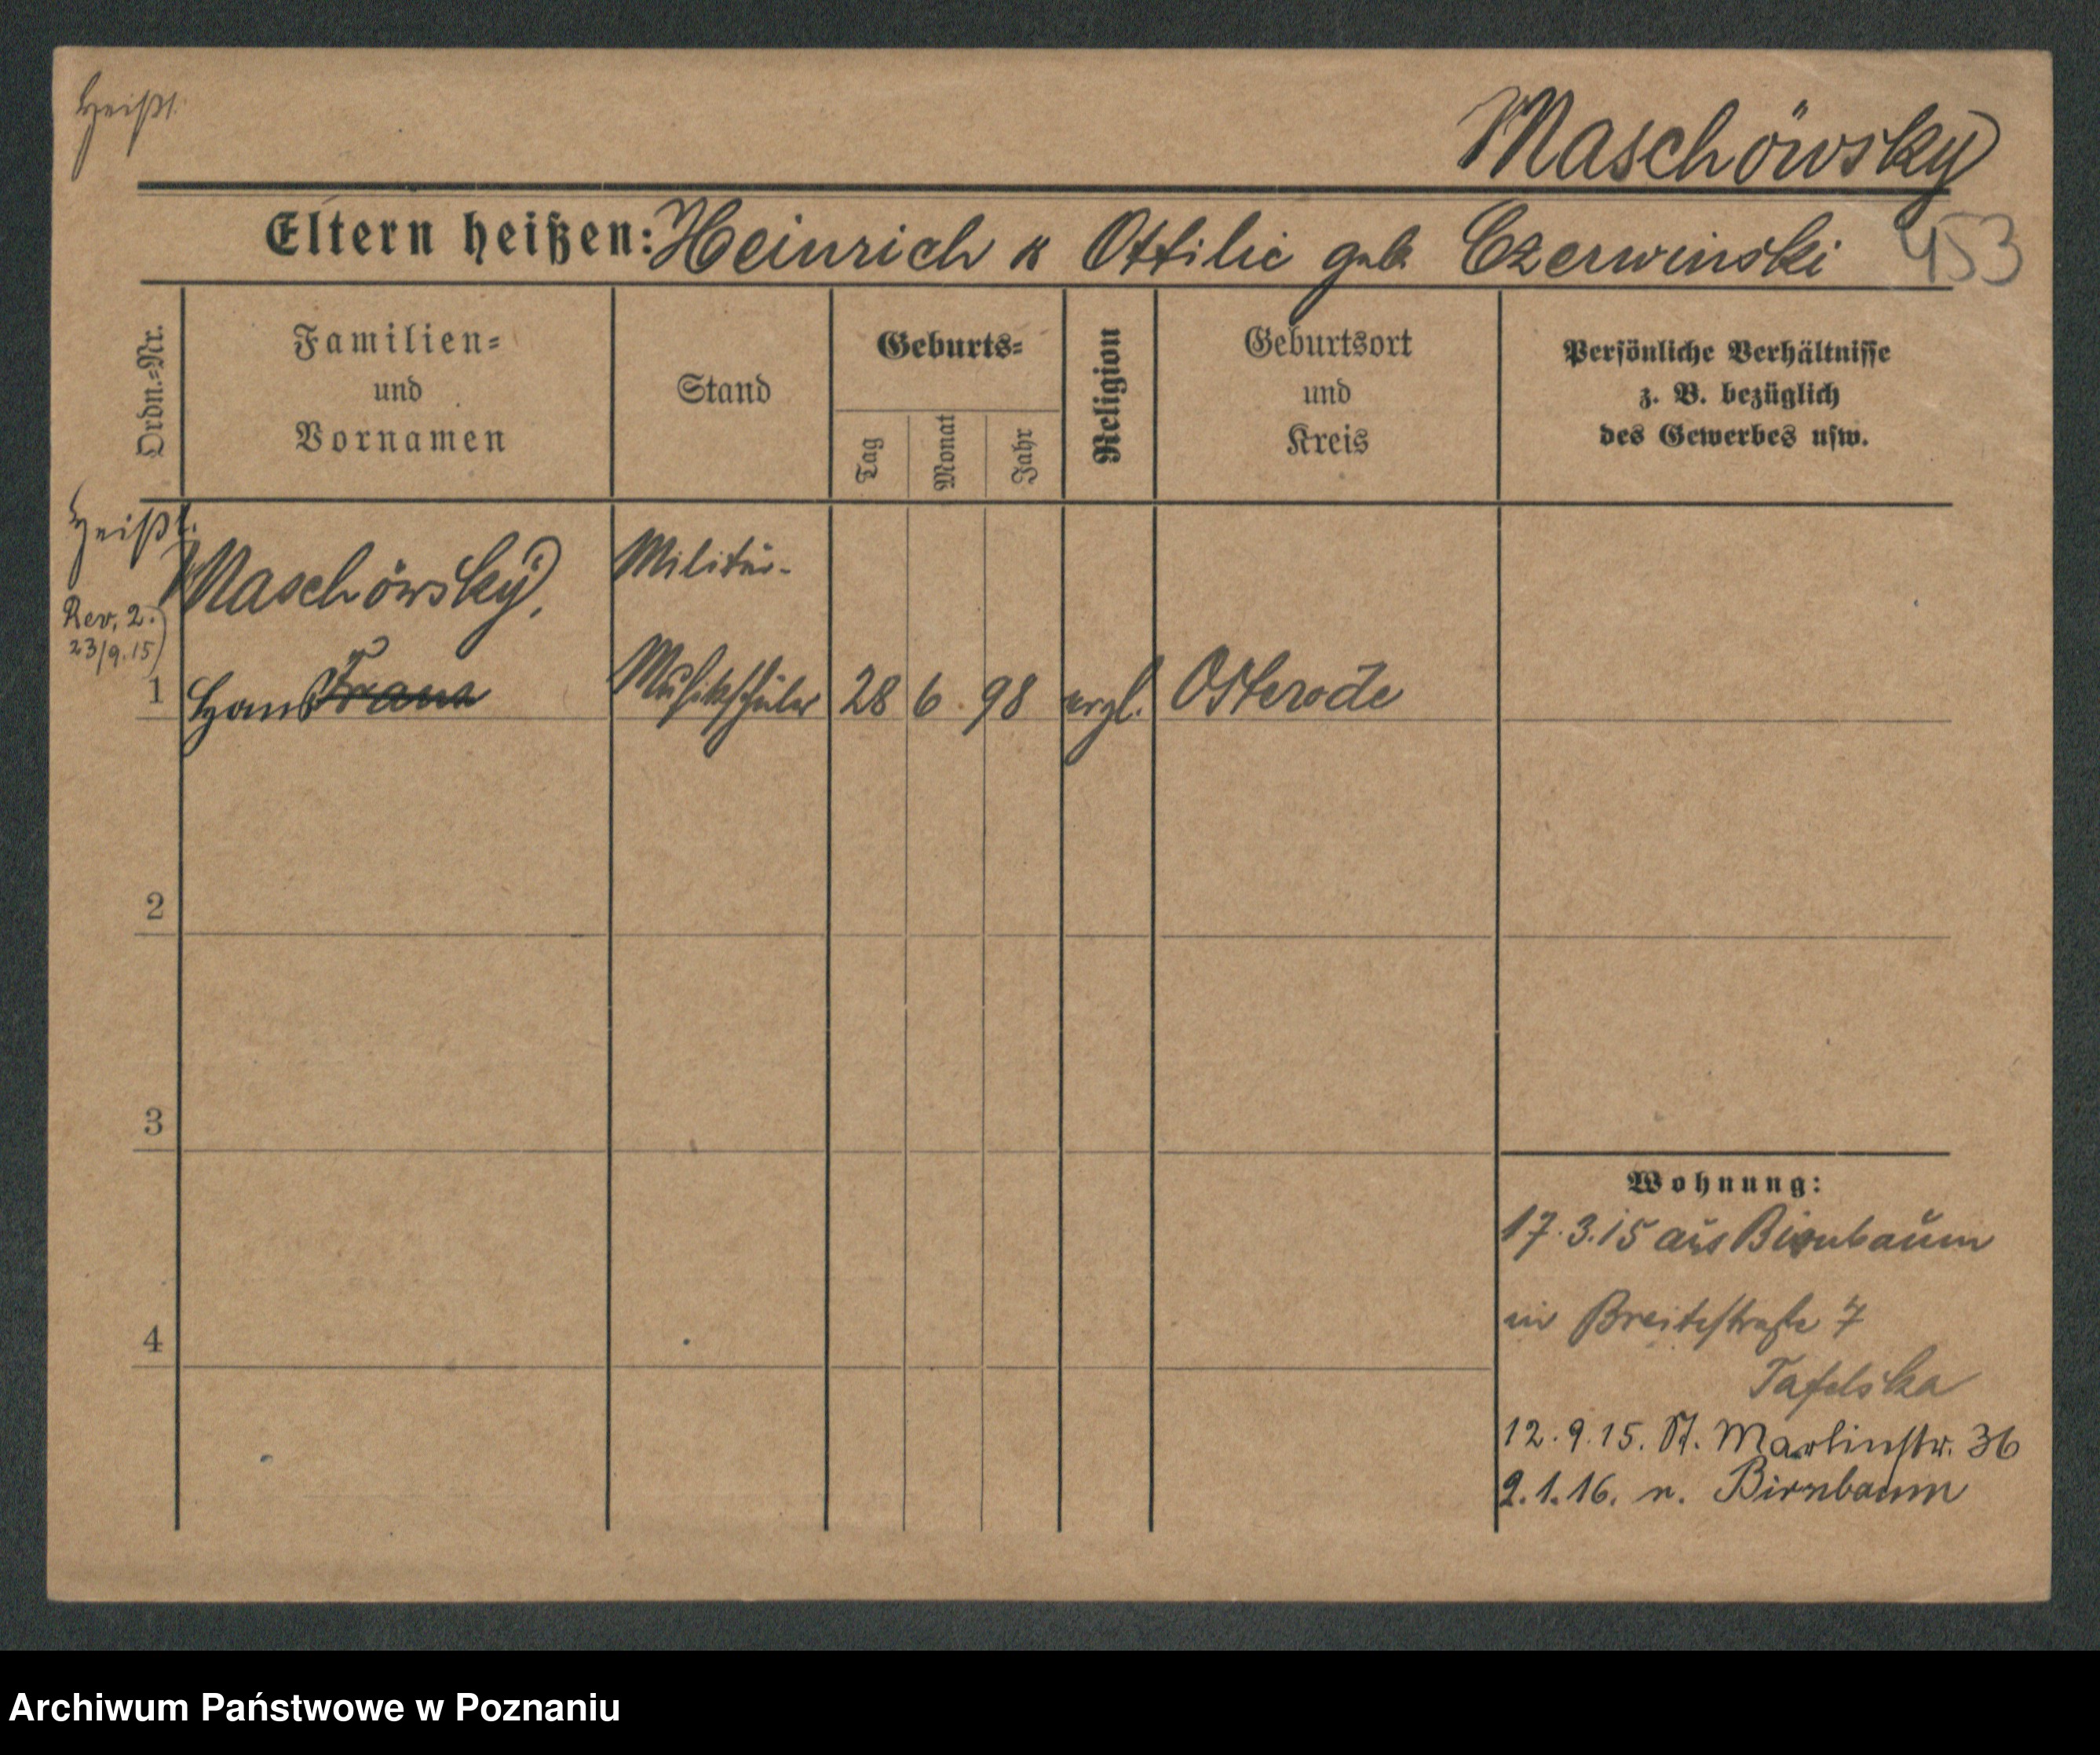 Heißt.
Maschöwsky
Eltern heißen: Heinrich u Ottilie geb. Czerwinski 453
Ordn.-Nr.
Familien-
und
Vornamen
Stand
Geburts-
Tag
Monat
Jahr
Religion
Geburtsort
und
Kreis
Persönliche Verhältnisse
z. B. bezüglich
des Gewerbes usw.
Heißt.
Maschöwsky,
Militär-
Rev. 2.
23/9.15
1 Hans Franz Musikschüler 28 6. 98 evgl. Osterode
2
3
4
Wohnung:
17.3.15 aus Birnbaum
in Breitestraße 7
Tafelska
12.9.15. St. Martinstr. 36
2.1.16. n. Birnbaum
Archiwum Państwowe w Poznaniu